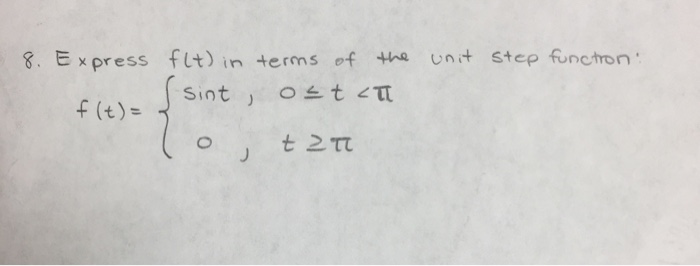 8. Express f(t) in terms of the unit step function:
f(t) = { sint, 0 ≤ t < π
0, t ≥ π